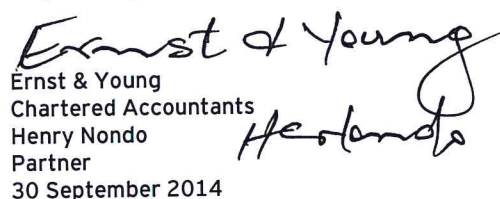 Ernst & Young
Ernst & Young
Chartered Accountants
Henry Nondo
Partner
30 September 2014